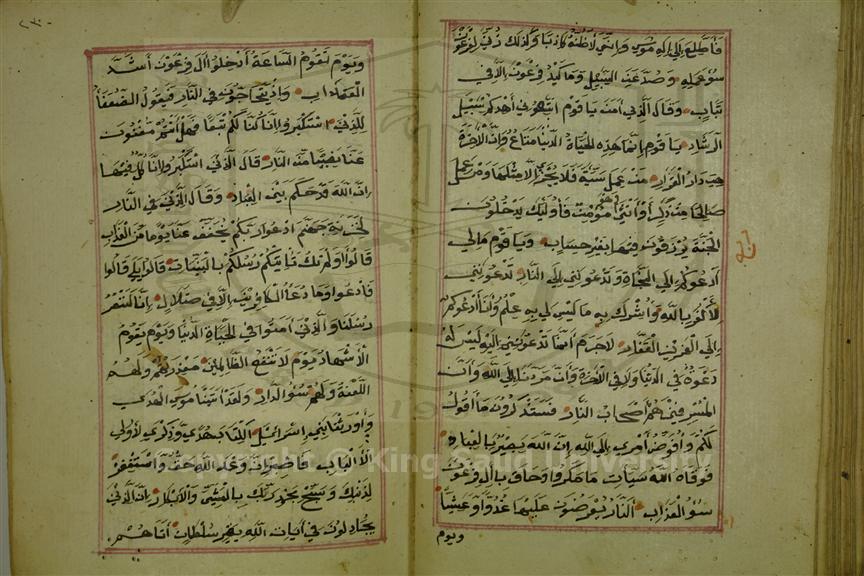 فأطلع إلى إله موسى وإني لأظنه كاذبا وكذلك زين لفرعون
سوء عمله وصد عن السبيل وما كيد فرعون إلا في
تباب وقال الذي امن يا قوم اتبعوني أهدكم سبيل
الرشاد يا قوم إنما هذه الحياة الدنيا متاع وإن الآخرة
هي دار القرار من عمل سيئة فلا يجزى إلا مثلها ومن عمل
صالحا من ذكر أو أنثى وهو مؤمن فأولئك يدخلون
الجنة يرزقون فيها بغير حساب ويا قوم مالي
أدعوكم إلى النجاة وتدعونني إلى النار تدعونني
لأكفر بالله وأشرك به ما ليس لي به علم وأنا أدعوكم
إلى العزيز الغفار لا جرم أنما تدعونني إليه ليس له
دعوة في الدنيا ولا في الآخرة وأن مردنا إلى الله وأن
المسرفين هم أصحاب النار فستذكرون ما أقول
لكم وأفوض أمري إلى الله إن الله بصير بالعباد
فوقاه الله سيات ما مكروا وحاق بال فرعون
سوء العذاب النار يعرضون عليها غدوا وعشيا
ويوم
ويوم تقوم الساعة أدخلوا ال فرعون أشد
العذاب وإذ يتحاجون في النار فيقول الضعفاء
للذين استكبروا إنا كنا لكم تبعا فهل أنتم مغنون
عنا نصيبا من النار قال الذين استكبروا إنا كل فيها
إن الله قد حكم بين العباد وقال الذين في النار
لخزنة جهنم ادعوا ربكم يخفف عنا يوما من العذاب
قالوا أولم تك تأتيكم رسلكم بالبينات قالوا بلى قالوا
فادعوا وما دعاء الكافرين إلا في ضلال إنا لننصر
رسلنا والذين امنوا في الحياة الدنيا ويوم يقوم
الأشهاد يوم لا تنفع الظالمين معذرتهم ولهم
اللعنة ولهم سوء الدار ولقد اتينا موسى الهدى
وأورثنا بني إسرائيل الكتاب هدى وذكرى لأولي
الألباب فاصبر إن وعد الله حق واستغفر
لذنبك وسبح بحمد ربك بالعشي والأبكار إن الذين
يجادلون في ايات الله بغير سلطان أتاهم
Copyright © King Saud University